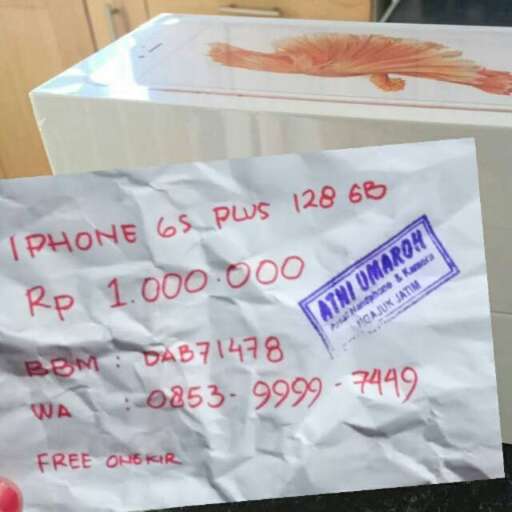 IPHONE 6S PLUS 128 GB
Rp 1.000.000
BBM : DAB71478
WA : 0853-9999-7449
FREE ONGKIR
AINI UMAROH
Handphone & Kamera
JATIM